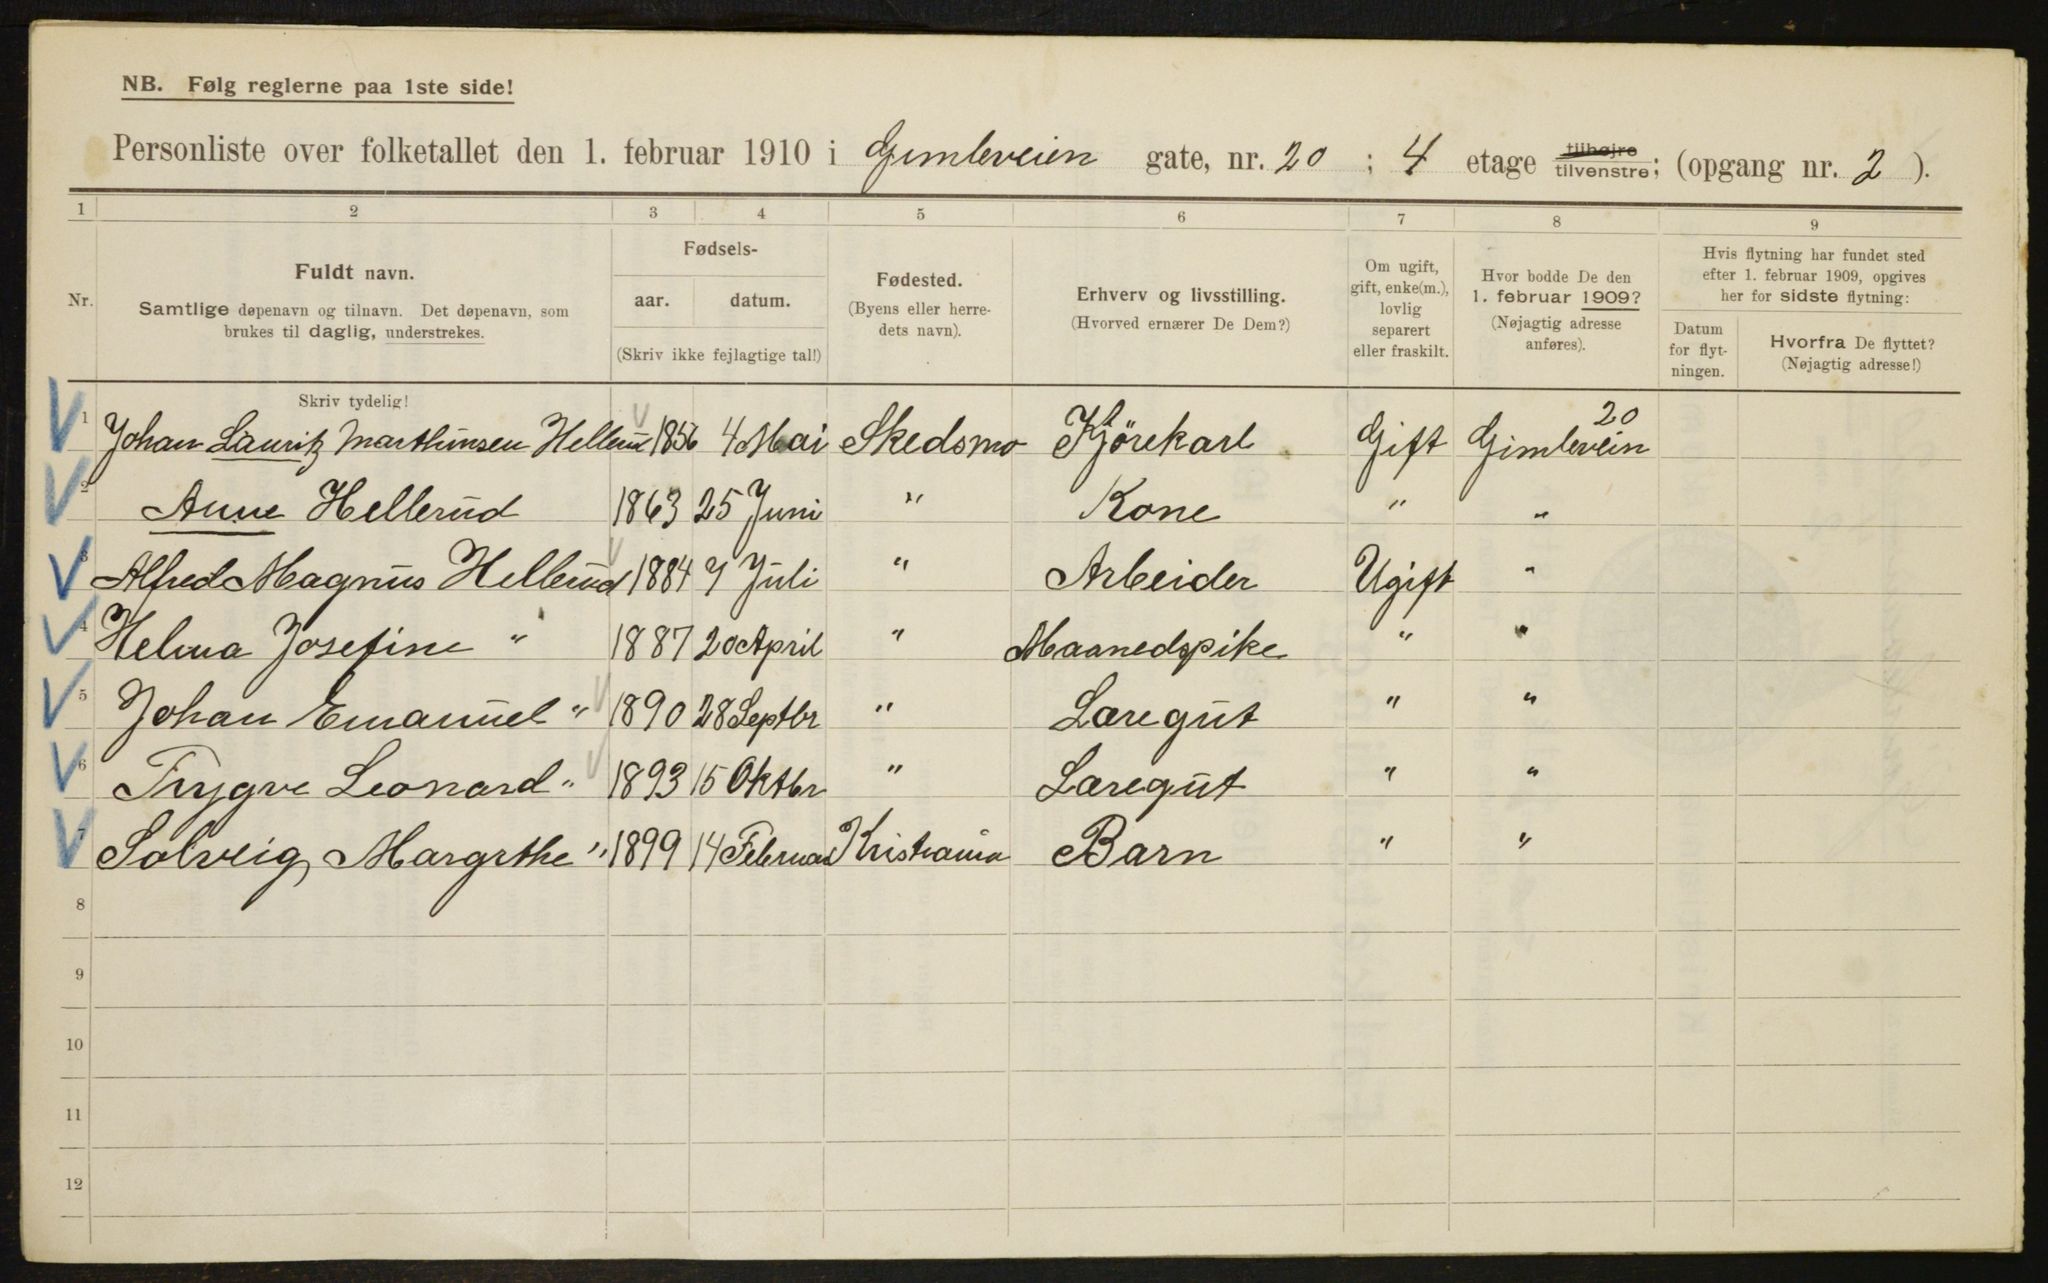 NB. Følg reglerne paa 1ste side!
Personliste over folketallet den 1. februar 1910 i Gimleveien gate, nr. 20 ; 4 etage tilhøjre tilvenstre; (opgang nr. 2 ).
1 2 3 4 5 6 7 8 9
Nr.
Fuldt navn.
Samtlige døpenavn og tilnavn. Det døpenavn, som
brukes til daglig, understrekes.
Fødsels-
aar. datum.
(Skriv ikke fejlagtige tal!)
Fødested.
(Byens eller herre-
dets navn).
Erhverv og livsstilling.
(Hvorved ernærer De Dem?)
Om ugift,
gift, enke(m.),
lovlig
separert
eller fraskilt.
Hvor bodde De den
1. februar 1909?
(Nøjagtig adresse
anføres).
Hvis flytning har fundet sted
efter 1. februar 1909, opgives
her for sidste flytning:
Datum
for flyt-
ningen.
Hvorfra De flyttet?
(Nøjagtig adresse!)
Skriv tydelig!
1 Johan Lauritz Marthinsen Hellerud 1856 4 Mai Skedsmo Kjörekarl Gift Gimlevein 20
2 Anne Hellerud 1863 25 Juni " Kone " "
3 Alfred Magnus Hellerud 1884 7 Juli " Arbeider Ugift "
4 Helma Josefine " 1887 20 April " Maanedspike " "
5 Johan Emanuel " 1890 28 Septbr " Læregut " "
6 Trygve Leonard " 1893 15 Oktbr " Læregut " "
7 Solveig Margrthe " 1899 14 Februar Kristiania Barn " "
8
9
10
11
12